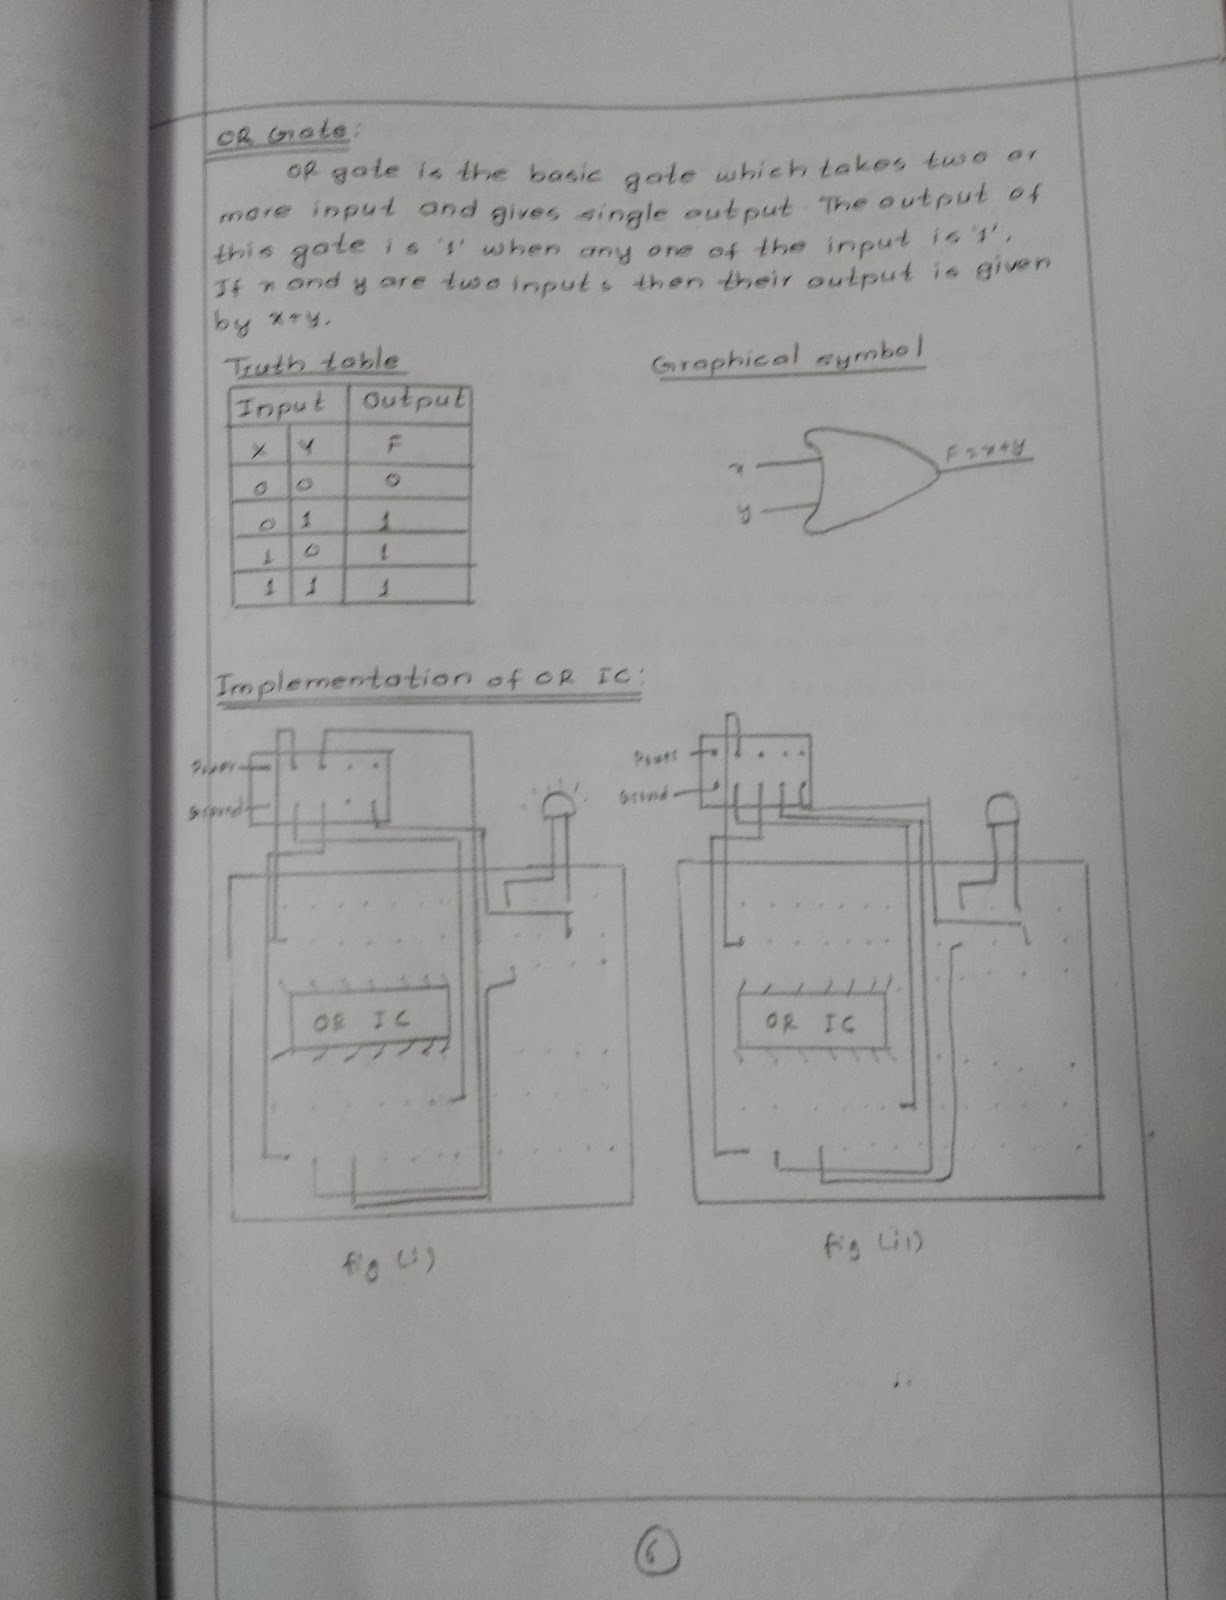 OR Gate:
OR gate is the basic gate which takes two or
more input and gives single output. The output of
this gate is '1' when any one of the input is '1'.
If x and y are two inputs then their output is given
by x+y.
Truth table
Graphical symbol
Input Output
X Y F
0 0 0
0 1 1
1 0 1
1 1 1
x
y
F = x+y
Implementation of OR IC:
Power
Ground
OR IC
fig (i)
Power
Ground
OR IC
fig (ii)
6